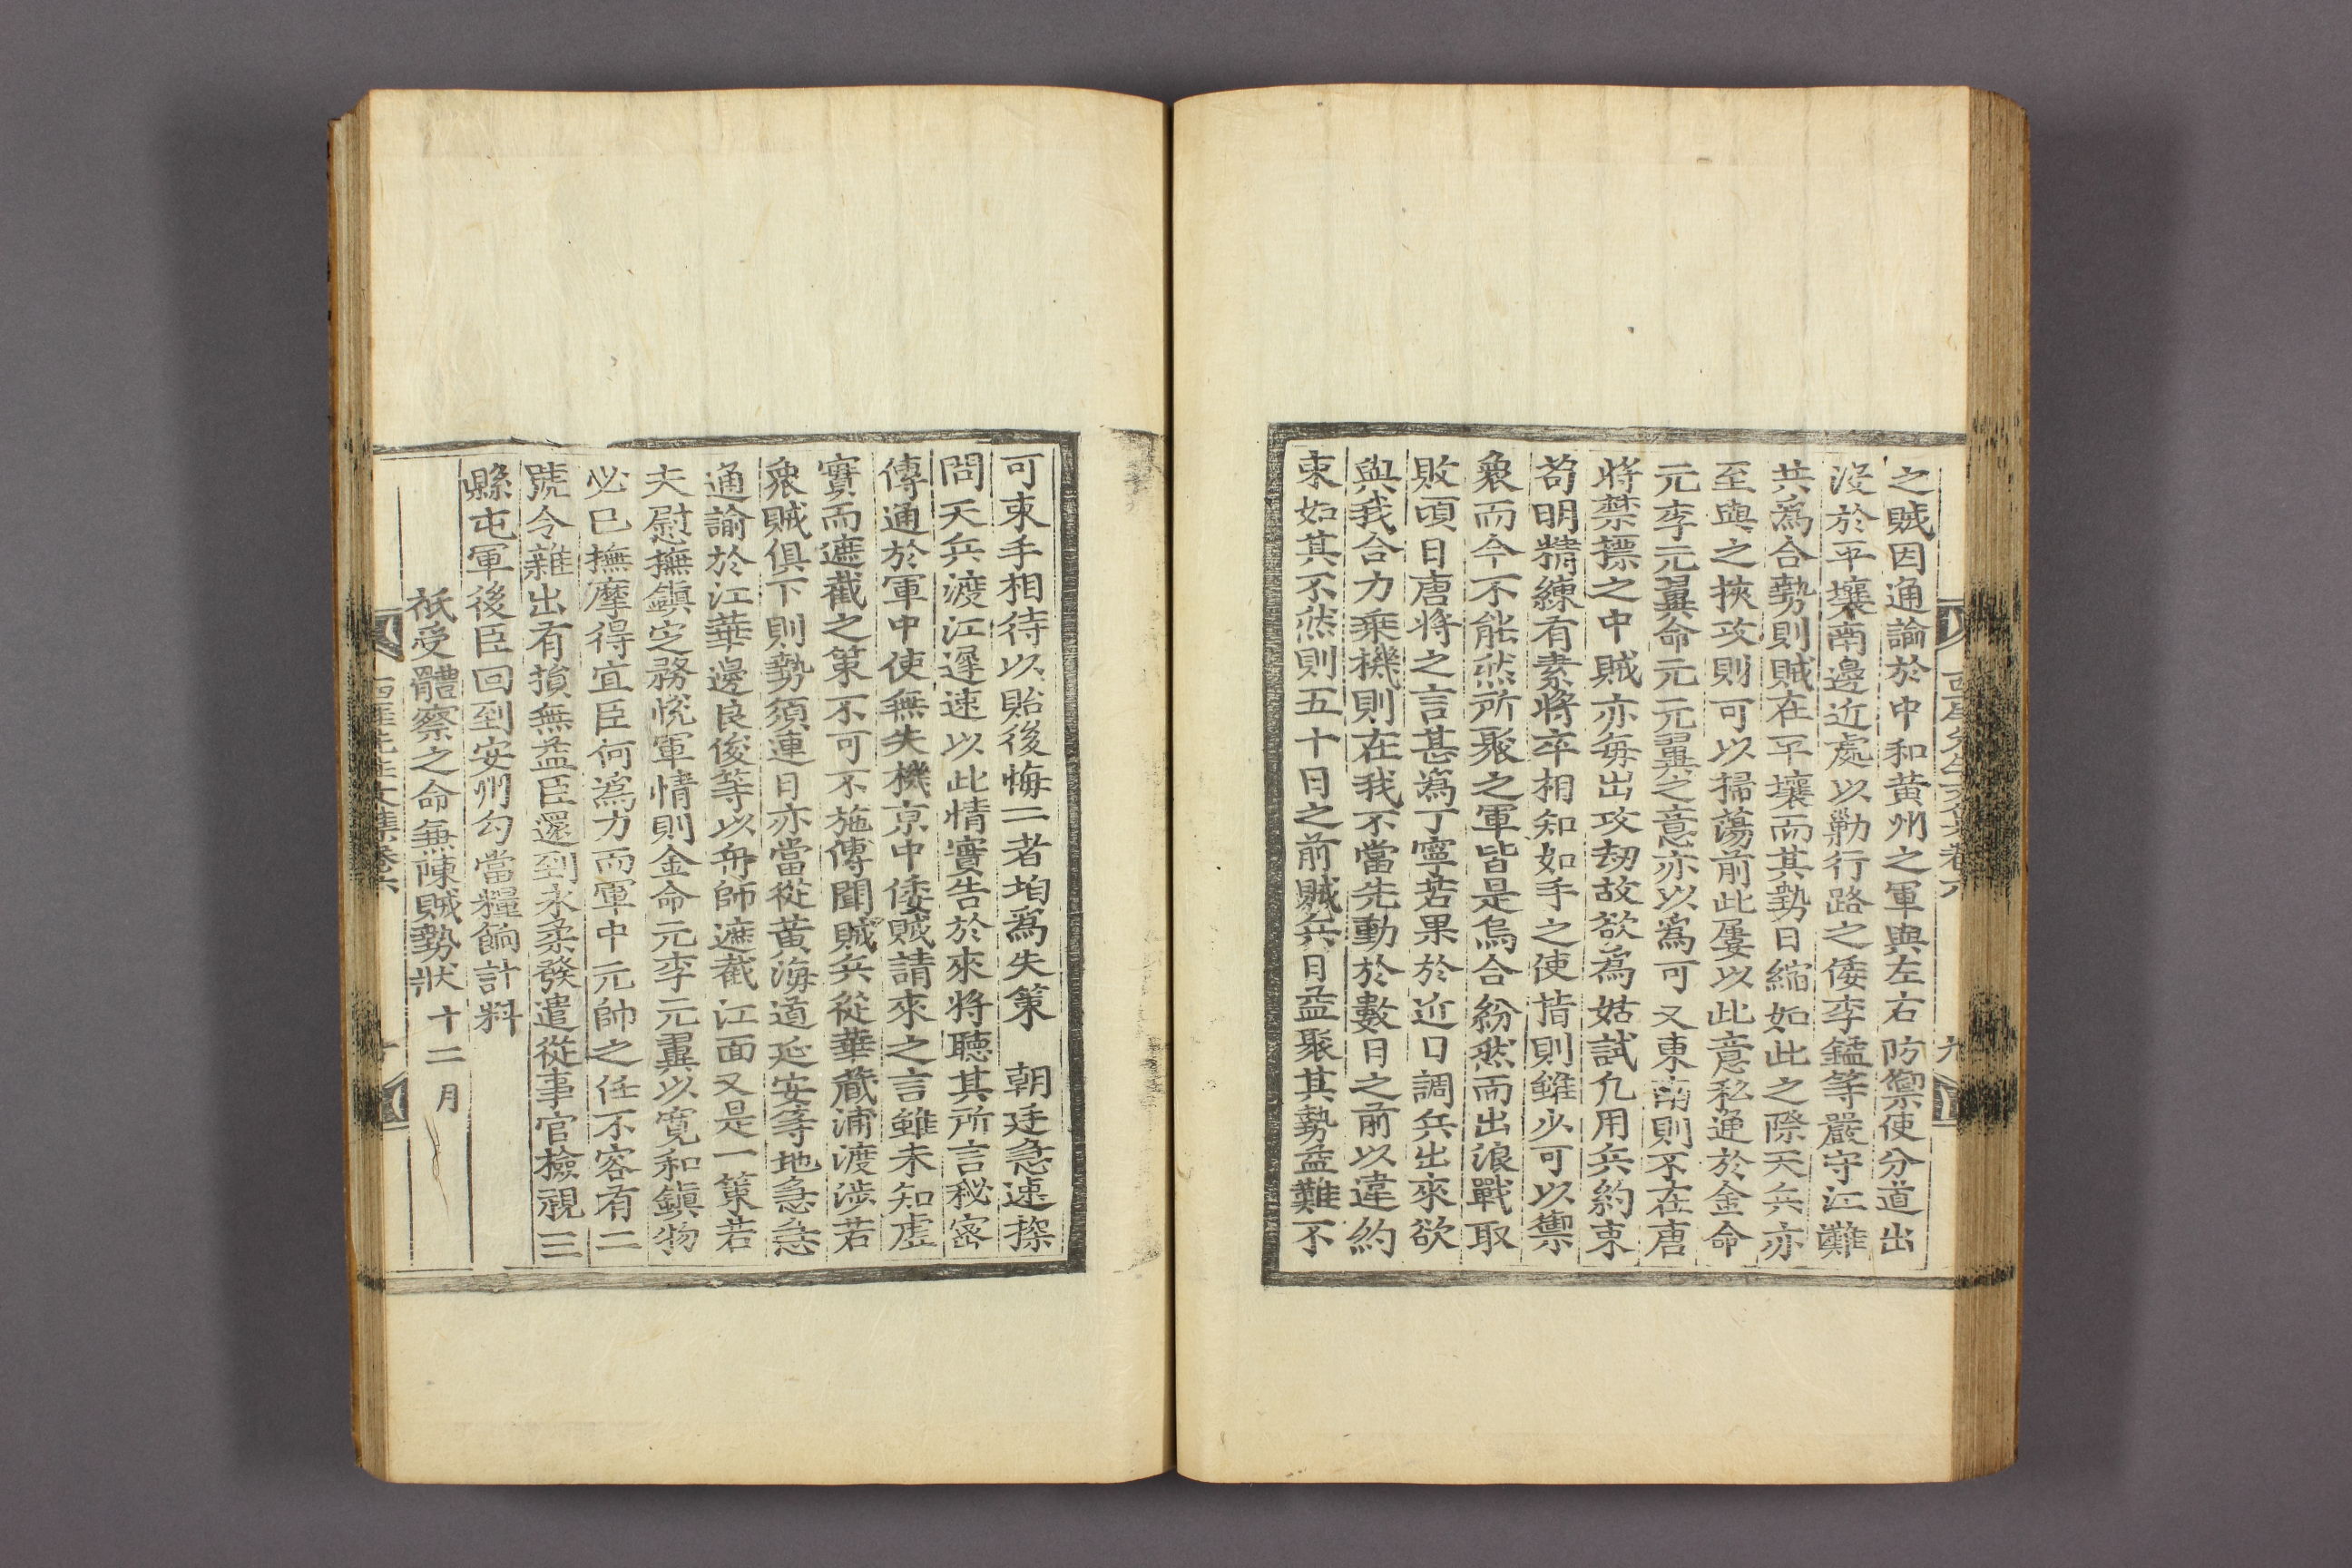 西厓先生文集卷六
九
之賊因通諭於中和黃州之軍與左右防禦使分道出
沒於平壤南邊近處以勦行路之倭李鎰等嚴守江灘
共爲合勢則賊在平壤而其勢日縮如此之際天兵亦
至與之挾攻則可以掃蕩前此屢以此意私通於金命
元李元翼命元元翼之意亦以爲可又東南則不在唐
將禁摽之中賊亦每出攻刼故欲爲姑試凢用兵約束
苟明精練有素將卒相知如手之使指則雖少可以禦
衆而今不能然所聚之軍皆是烏合紛然而出浪戰取
敗頃日唐將之言甚爲丁寧若果於近日調兵出來欲
與我合力乗機則在我不當先動於數日之前以違約
束如其不然則五十日之前賊兵日益聚其勢益難不
可束手相待以貽後悔二者均爲失策 朝廷急速探
問天兵渡江遲速以此情實告於來將聽其所言秘密
傳通於軍中使無失機京中倭賊請來之言雖未知虛
實而遮截之策不可不施傳聞賊兵從華藏浦渡涉若
衆賊俱下則勢須連日亦當從黃海道延安等地急急
通諭於江華邊良俊等以舟師遮截江面又是一策若
夫慰撫鎭定務悅軍情則金命元李元翼以寬和鎭物
必已撫摩得宜臣何爲力而軍中元帥之任不容有二
號令雜出有損無益臣還到永柔發遣從事官檢視三
縣屯軍後臣回到安州勾當糧餉計料
祗受體察之命兼陳賊勢狀 十二月
西厓先生文集卷六
十